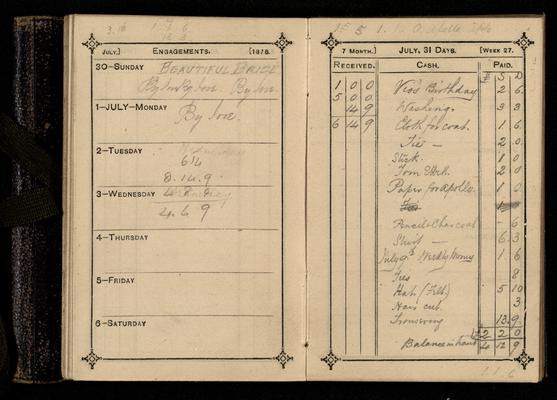 JULY.] ENGAGEMENTS. [1878.
30-SUNDAY BEAUTIFUL BRIDE
By love By love. By love.
1-JULY-MONDAY
By love.
2-TUESDAY
6 14
8. 14. 9
3-WEDNESDAY 4 8 0
4. 6 9
4-THURSDAY
5-FRIDAY
6-SATURDAY
7 MONTH.] JULY, 31 DAYS. [WEEK 27.
RECEIVED. CASH. PAID.
1 0 0
5 0 0
14 9
6 14 9
£ S D
Vio's Birthday 2 6
Washing. 3 3
Cloth for coat. 1. 6
Ties — 2 0
Stick. 1 0
2 0
Paper for apollo. 1 0
Pencils & Charcoal 6
Shirt — 6. 3
July 9th Weekly Money 1. 6
Ties 8
Hat (Felt) 5 10
Hair cut. 3
13. 9
2 2 0
Balance in hand 4 12 9